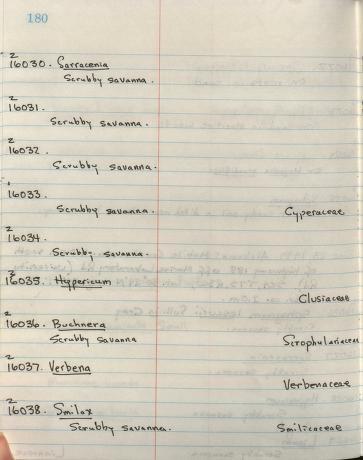 180
2
16030. Sarracenia
Scrubby savanna.
2
16031.
Scrubby savanna.
2
16032.
Scrubby savanna.
1
16033.
Scrubby savanna. Cyperaceae
2
16034.
Scrubby savanna.
3
16035. Hypericum
Clusiaceae
2
16036. Buchnera
Scrubby savanna Scrophulariaceae
2
16037. Verbena
Verbenaceae
2
16038. Smilax
Scrubby savanna. Smilicaceae